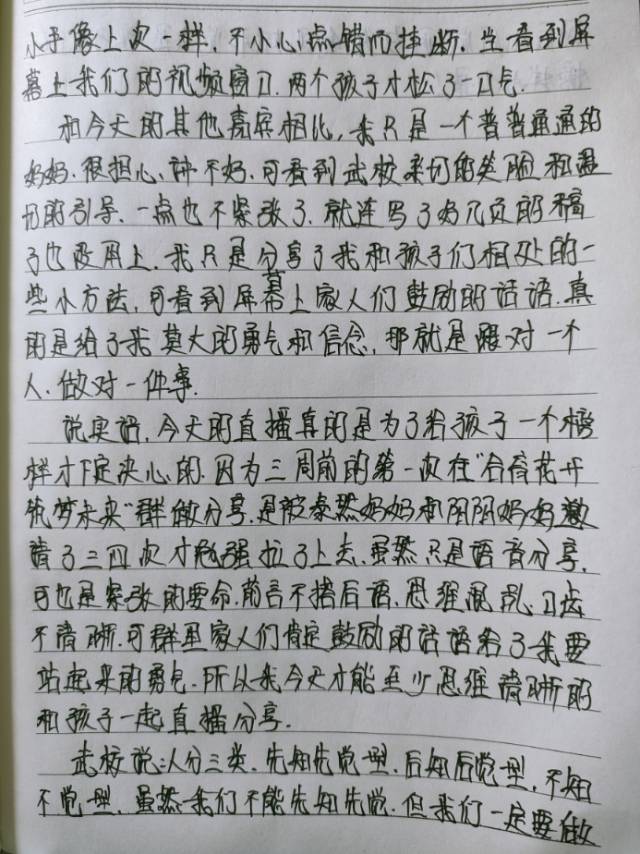 小手像上次一样，不小心点错而挂断，当看到屏
幕上我们的视频窗口，两个孩子才松了一口气。
和今天的其他嘉宾相比，我只是一个普普通通的
妈妈，很担心讲不好，可看到武校亲切的笑脸和温
切的引导，一点也不紧张了，就连写了好几页的稿
子也没用上，我只是分享了我和孩子们相处的一
些小方法，可看到屏幕上家人们鼓励的话语，真
的是给了我莫大的勇气和信念，那就是跟对一个
人，做对一件事。
说实话，今天的直播真的是为了给孩子一个榜
样才下定决心的，因为三周前的第一次在“合育花开
筑梦未来”群做分享，是被泰然妈妈和阴阴妈妈邀
请了三四次才勉强拉了上去，虽然只是语音分享，
可也是紧张的要命，前言不搭后语，思维混乱，口齿
不清晰，可群里家人们肯定鼓励的话语给了我要
站起来的勇气，所以我今天才能至少思维清晰的
和孩子一起直播分享。
武校说：人分三类，先知先觉型，后知后觉型，不知
不觉型，虽然我们不能先知先觉，但我们一定要做